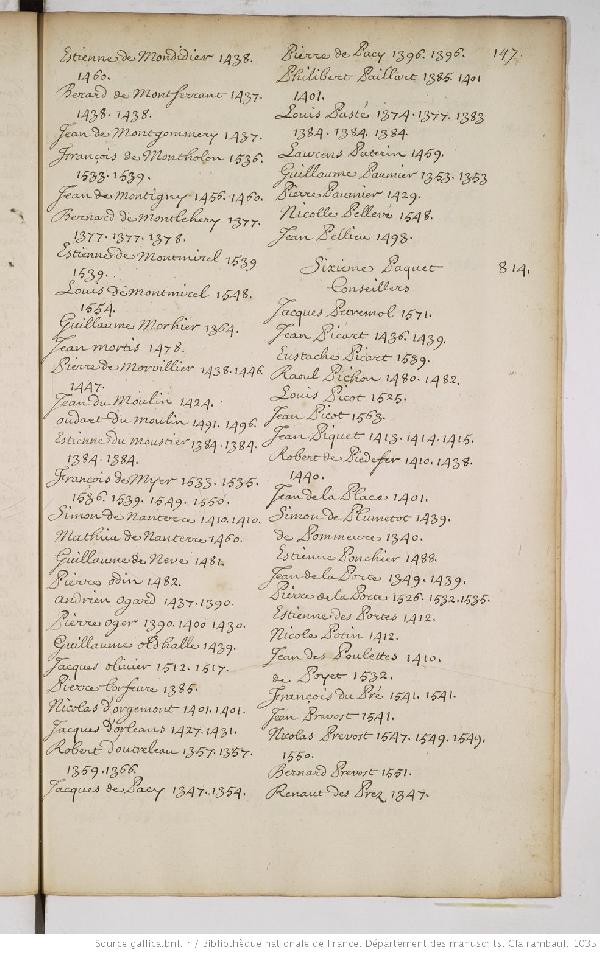 147.
Estienne de Mondidier 1438.
1460.
Berard de Montferrant 1437.
1438. 1438.
Jean de Montgommery 1437.
François de Montholon 1536.
1533. 1539.
Jean de Montigny 1456. 1460.
Bernard de Montlehery 1377.
1377. 1377. 1378.
Estienne de Montmirel 1539
1539.
Louis de Montmirel 1548.
1554.
Guillaume Morhier 1364.
Jean mortis 1478.
Pierre de Morvillier 1438. 1446
1447.
Jean du Moulin 1424.
oudart du Moulin 1491. 1496.
Estienne du moustier 1384. 1384.
1384. 1384.
François de Myer 1533. 1535.
1536. 1539. 1549. 1550.
Simon de Nanterre 1410. 1410.
Mathieu de Nanterre 1460.
Guillaume de Neve 1481.
Pierre odin 1482.
andrien ogard 1437. 1390.
Pierre oger 1390. 1400 1430.
Guillaume oldhalle 1439.
Jacques olivier 1512. 1517.
Pierre l'orfevre 1385.
Nicolas d'orgemont 1401. 1401.
Jacques d'orleans 1427. 1431.
Robert d'outreleau 1357. 1357.
1359. 1366.
Jacques de Pacy 1347. 1354.
Pierre de Pacy 1396. 1396.
Philibert Paillart 1385. 1401
1401.
Louis Pasté 1374. 1377. 1383
1384. 1384. 1384.
Lawrens Paterin 1459.
Guillaume Paumier 1353. 1353
Pierre Paumier 1429.
Nicolle Pellevé 1548.
Jean Pellieu 1498.
Sixieme Paquet 814.
Conseillers
Jacques Petremol 1571.
Jean Picart 1436. 1439.
Eustache Picart 1539.
Raoul Pichon 1480. 1482.
Louis Picot 1525.
Jean Picot 1563.
Jean Piquet 1413. 1414. 1415.
Robert de Piedefer 1410. 1438.
1440.
Jean de la Place 1401.
Simon de Plumetot 1439.
de Pommeure 1340.
Estienne Ponchier 1488.
Jean de la Porte 1349. 1439.
Pierre de la Porte 1526. 1532. 1535.
Estienne des Portes 1412.
Nicole Potin 1412.
Jean des Poulettes 1410.
de Poyet 1532.
François du Pré 1541. 1541.
Jean Prevost 1541.
Nicolas Prevost 1547. 1549. 1549.
1550.
Bernard Prevost 1551.
Renaut des Prez 1347.
Source gallica.bnf.fr / Bibliothèque nationale de France. Département des manuscrits. Clairambault 1035